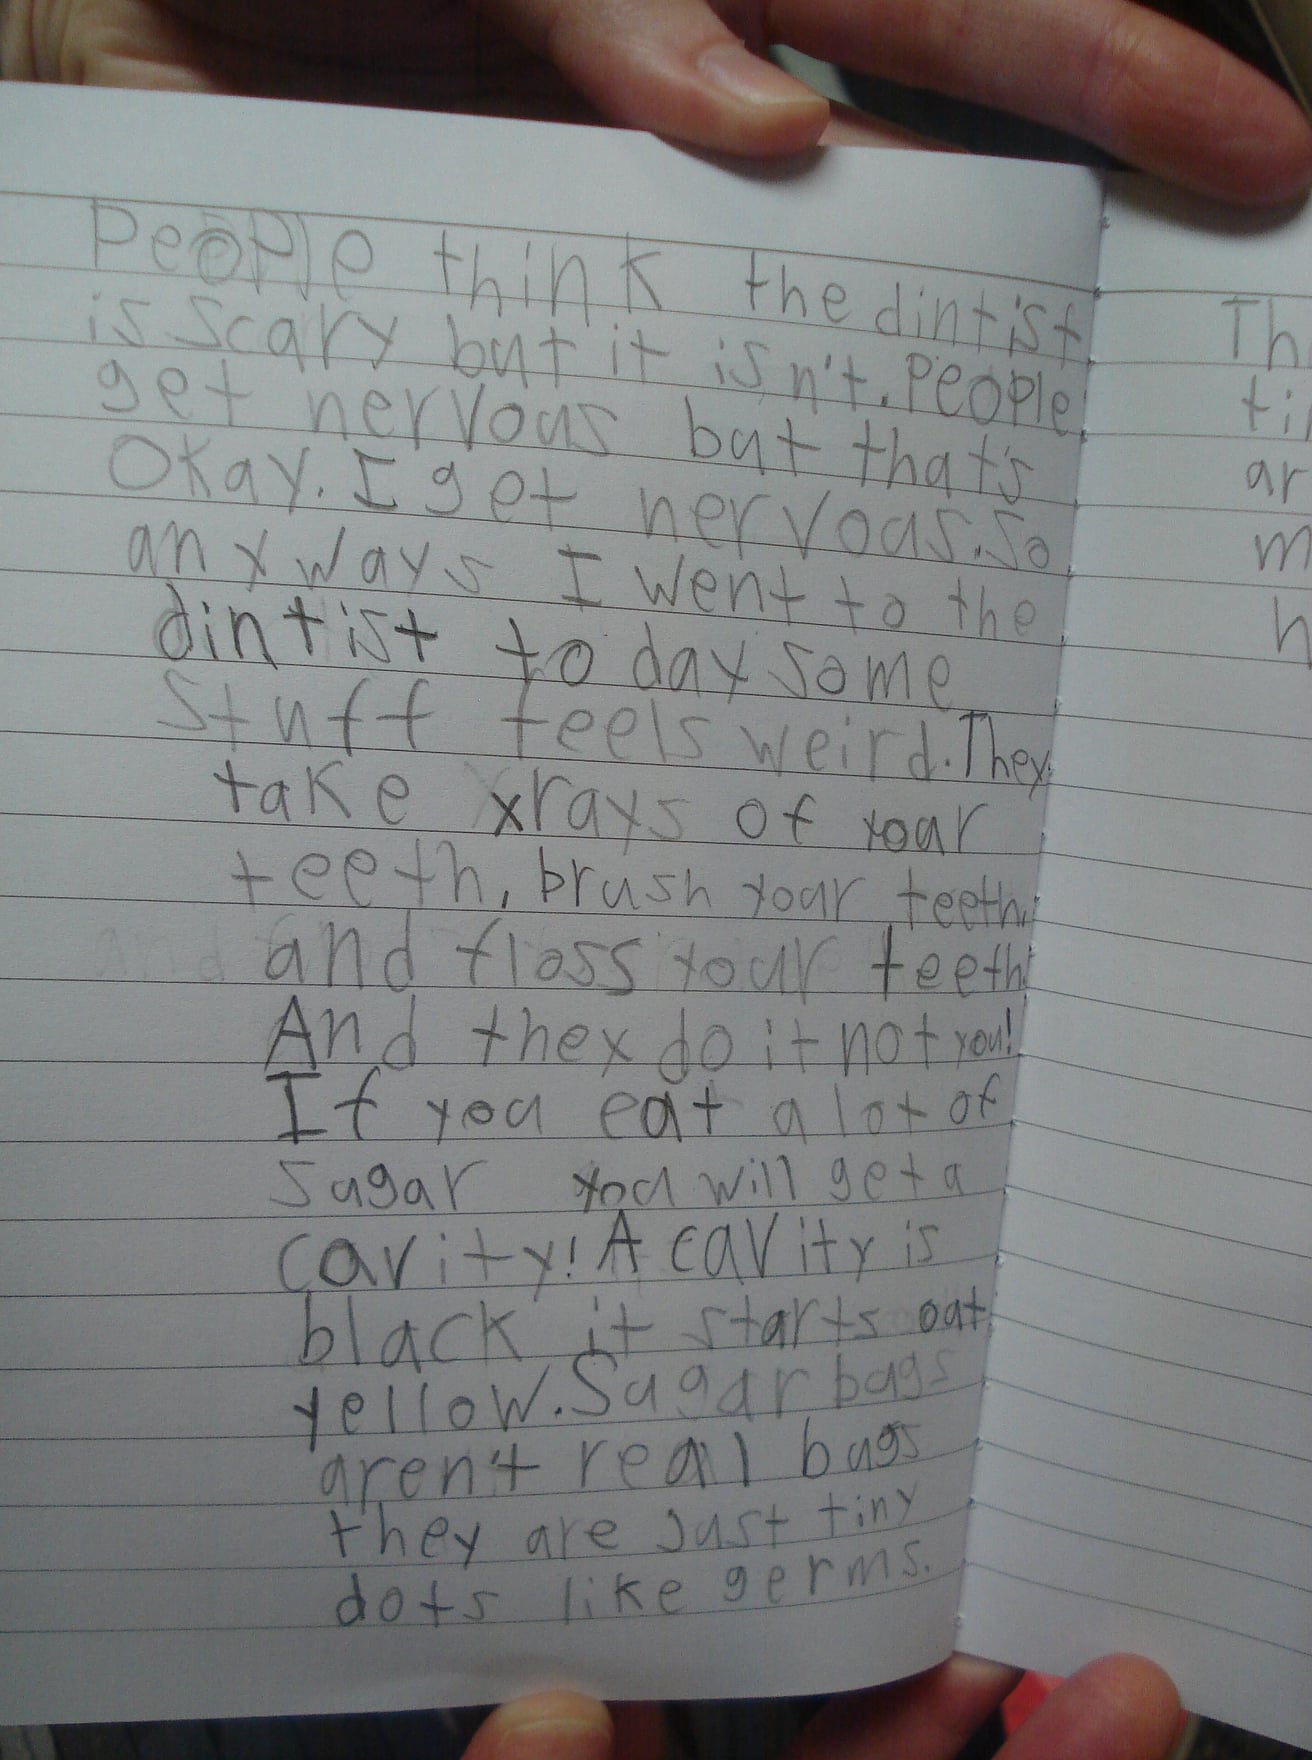 People think the dintist
is scary but it isn't. People
get nervous but that's
Okay. I get nervous. So
anyways I went to the
dintist to day some
stuff feels weird. They
take xrays of your
teeth, brush your teeth,
and floss your teeth
And they do it not you!
If you eat a lot of
sugar you will get a
cavity! A cavity is
black it starts out
yellow. Sugar bugs
aren't real bugs
they are just tiny
dots like germs.
Th
ti
ar
m
h